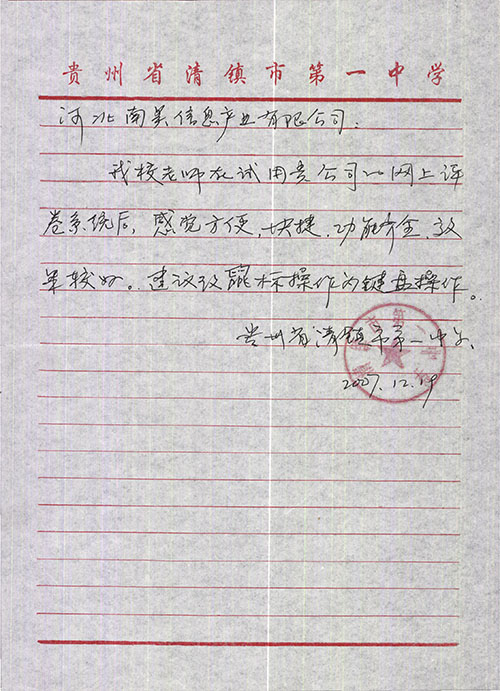 贵州省清镇市第一中学
河北南昊信息产业有限公司：
我校老师在试用贵公司的网上评
卷系统后，感觉方便，快捷，功能齐全，效
果较好。建议改鼠标操作为键盘操作。
贵州省清镇市第一中学
2007.12.19